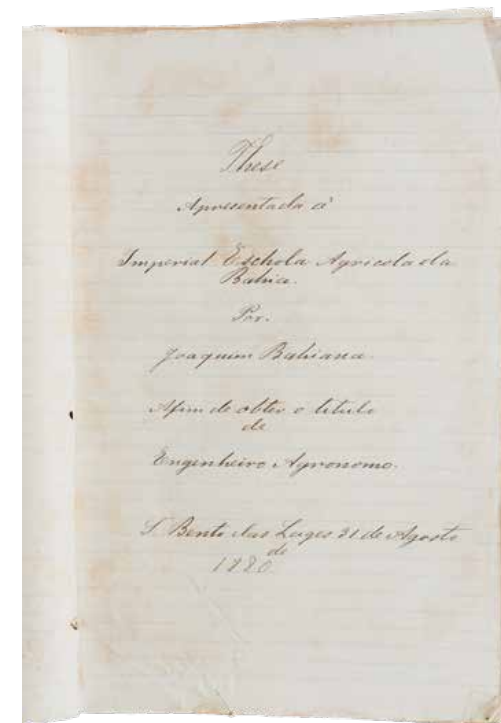 These
Apresentada á
Imperial Eschola Agricola da
Bahia.
Por.
Joaquim Bahiana.
Afim de obter o titulo
de
Engenheiro Agronomo.
S. Bento das Lages 31 de Agosto
de
1880.